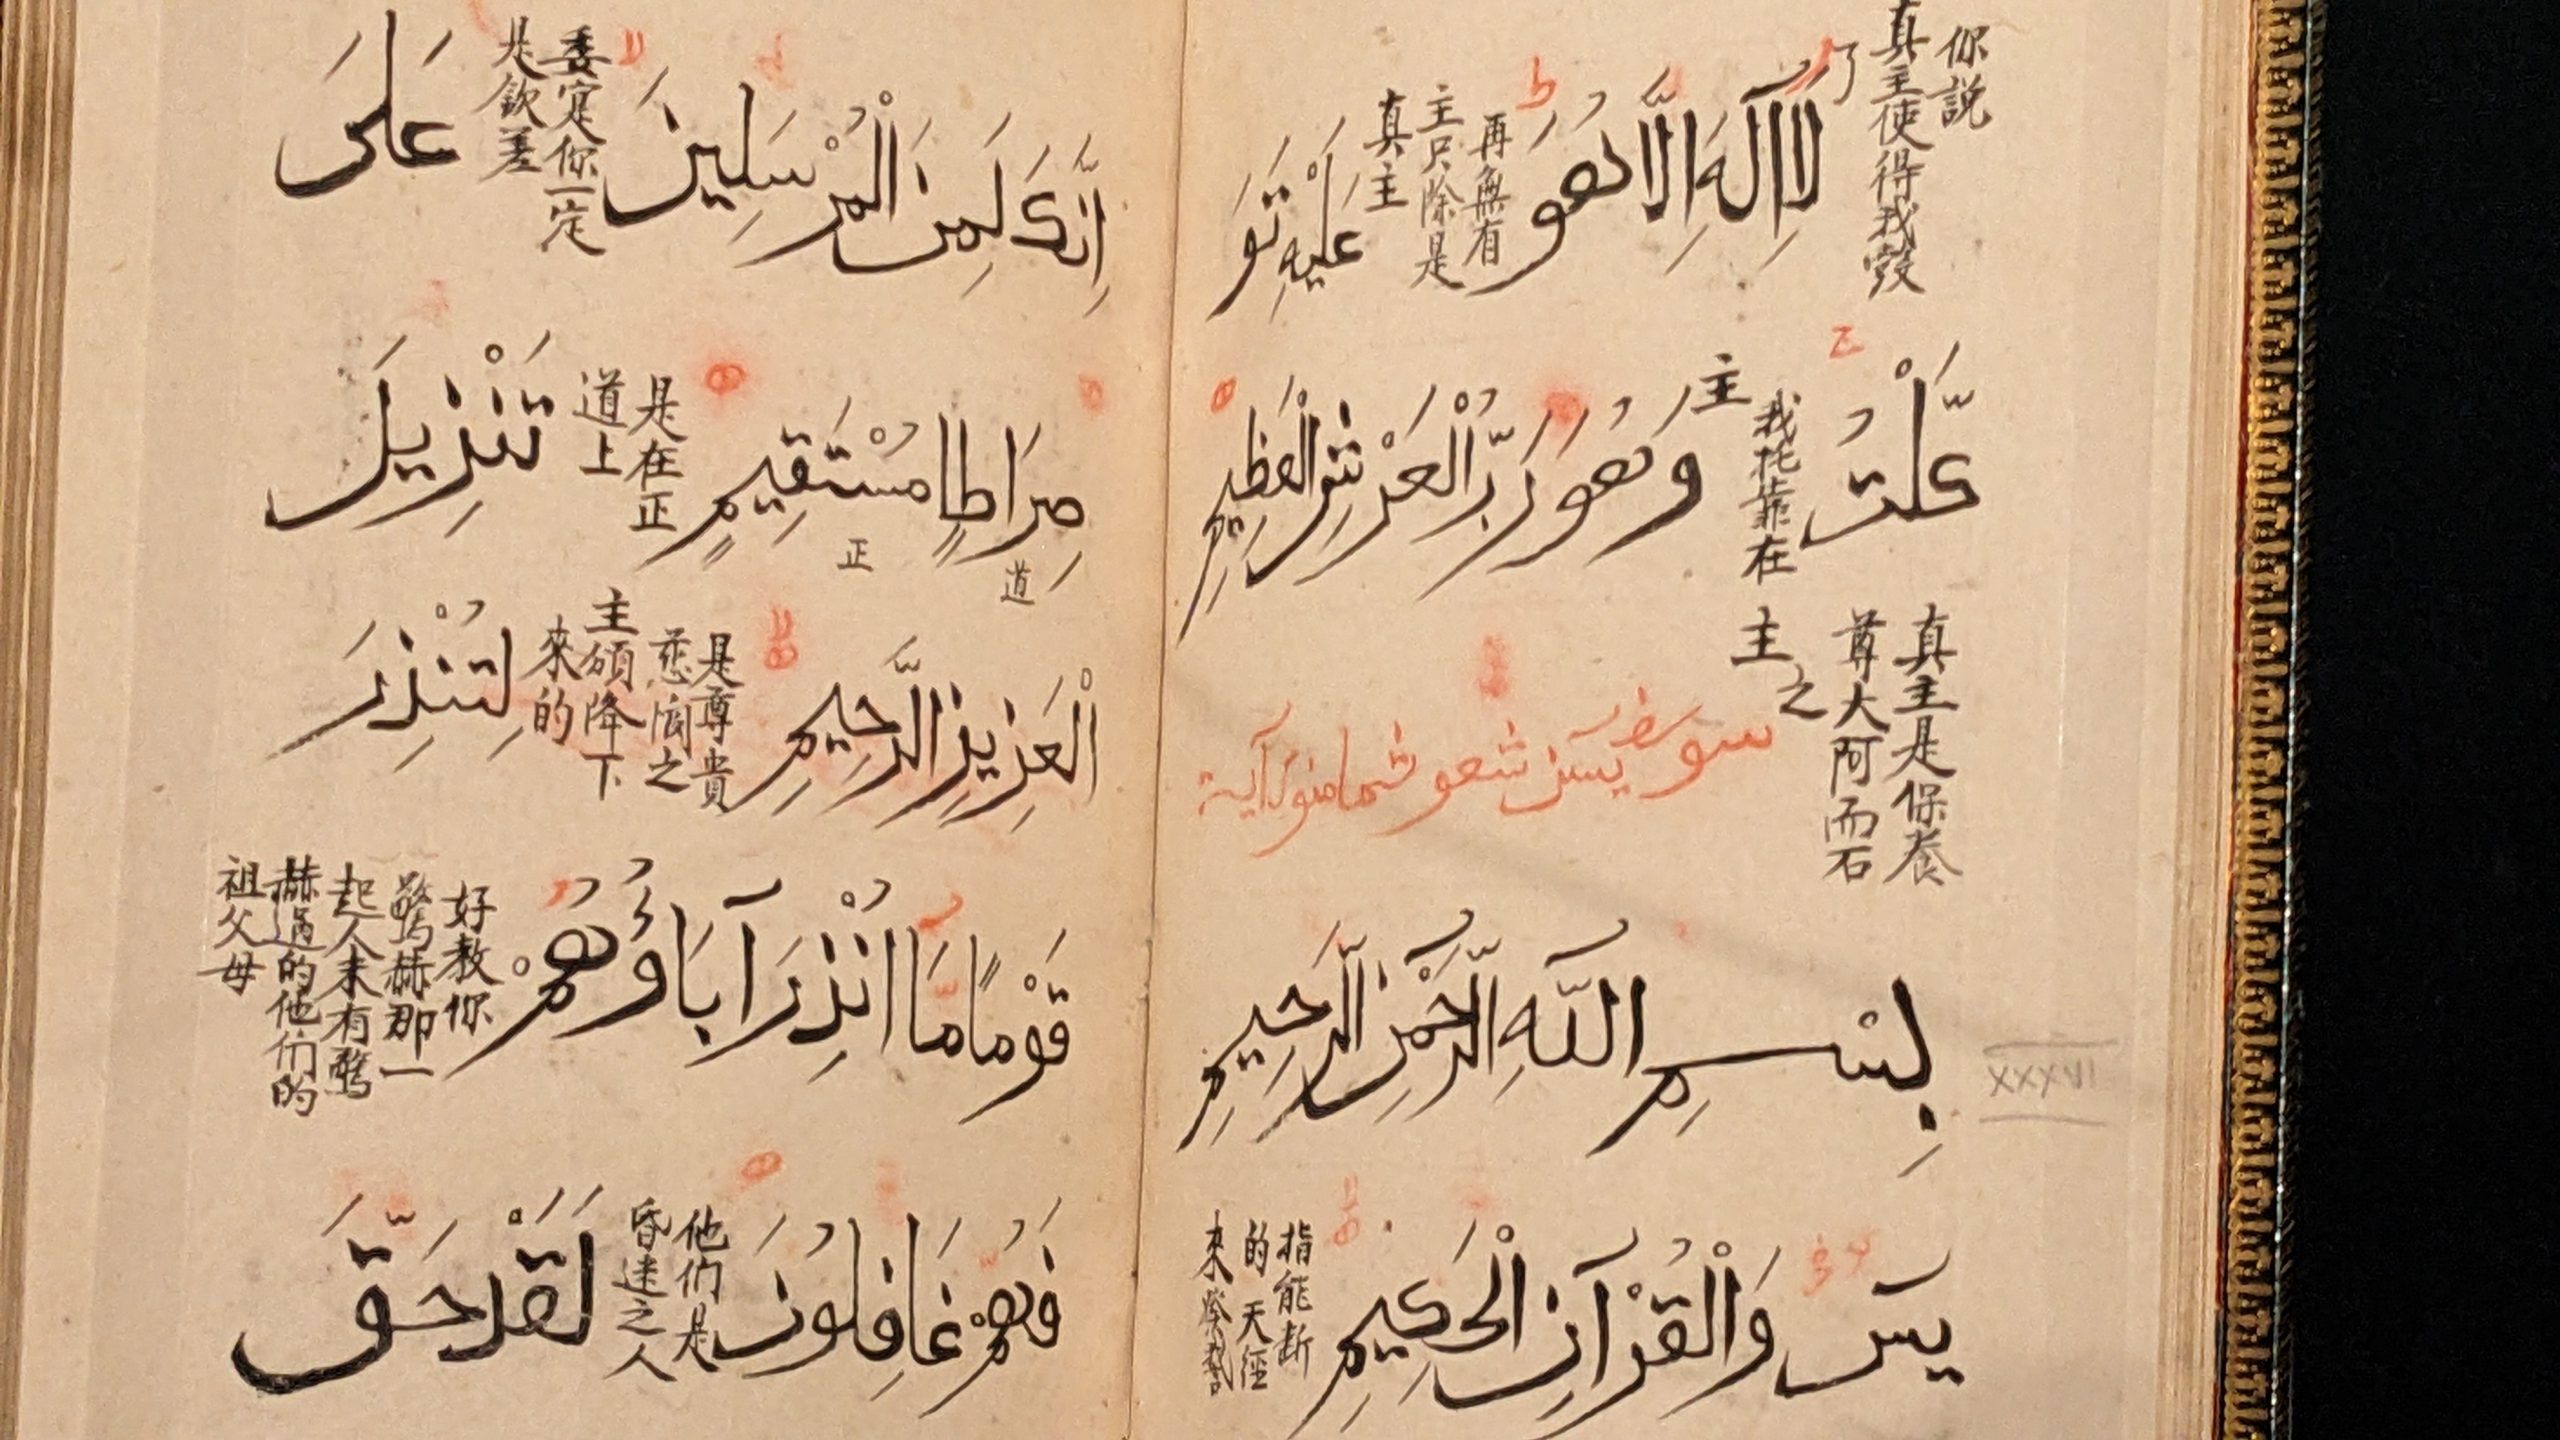 你説
真主使得我彀
了
لَا اِلٰهَ اِلَّا هُوَ
再無有
主只除是
真主
عَلَيْهِ تَوَ
كَّلْتُ
我托靠在
主
وَهُوَ رَبُّ الْعَرْشِ الْعَظِيمِ
真主是保養
尊大阿而石
之
主
يٰسٓ
آية
بِسْمِ اللّٰهِ الرَّحْمٰنِ الرَّحِيمِ
XXXVI
يٰسٓ وَالْقُرْآنِ الْحَكِيمِ
指能斷
的天經
來發誓
اِنَّكَ لَمِنَ الْمُرْسَلِينَ
委定你一定
是欽差
عَلَى
صِرَاطٍ مُسْتَقِيمٍ
道
正
是在正
道上
تَنْزِيلَ
الْعَزِيزِ الرَّحِيمِ
是尊貴
慈憫之
主頒降下
來的
لِتُنْذِرَ
قَوْمًا مَا اُنْذِرَ آبَاؤُهُمْ
好教你
驚赫那一
起人未有驚
赫過的他们的
祖父母
فَهُمْ غَافِلُونَ
他们是
昏迷之人
لَقَدْ حَقَّ